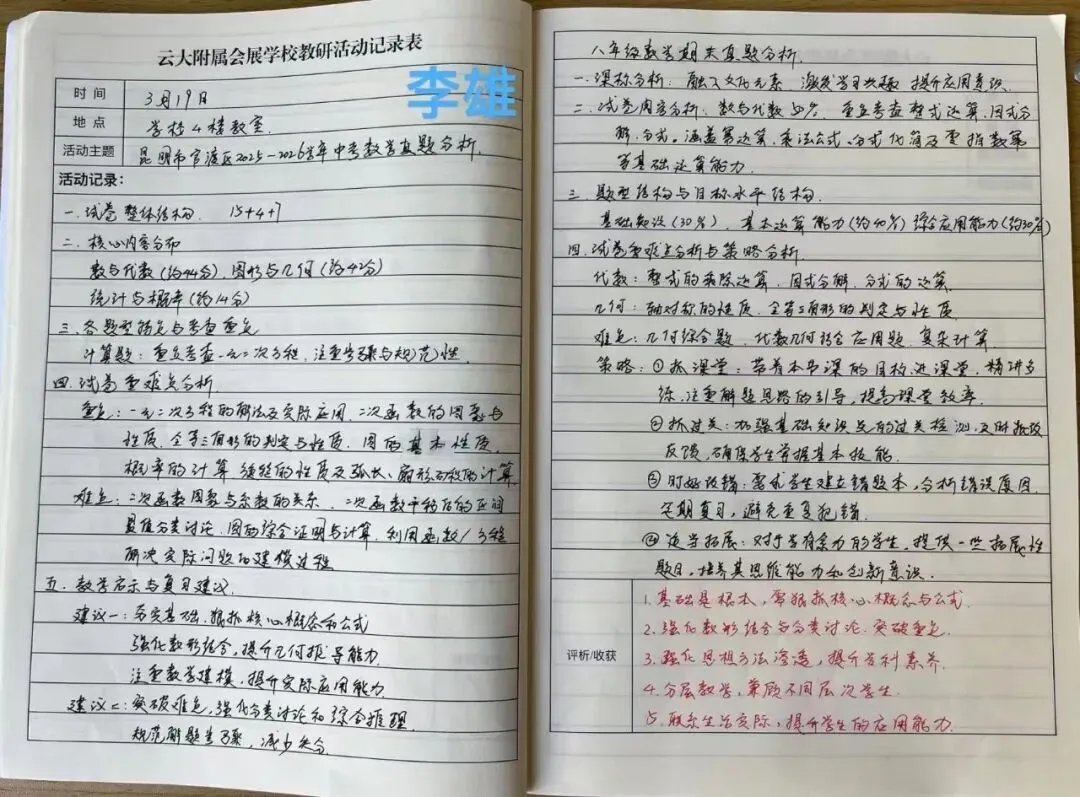 云大附属会展学校教研活动记录表
李雄
时间 3月19日
地点 学校4楼教室.
活动主题 昆明市官渡区2025-2026学年中考数学真题分析.
活动记录：
一.试卷整体结构. 15+4+7
二.核心内容分布
数与代数(约44分),图形与几何(约42分)
统计与概率(约14分)
三.各题型特点与考查重点
计算题：重点考查一元二次方程,注重步骤与规范性.
四.试卷重难点分析
重点：一元二次方程的解法及实际应用.二次函数的图象与
性质.全等三角形的判定与性质.圆的基本性质,
概率的计算 旋转的性质及弧长、扇形面积的计算
难点：二次函数图象与系数的关系、二次函数平移后的区间
最值分类讨论.圆的综合证明与计算.利用函数/方程
解决实际问题的建模过程
五.教学启示与复习建议
建议一：夯实基础.狠抓核心概念和公式
强化数形结合,提升几何推导能力
注重数学建模,提升实际应用能力
建议二：突破难点,强化分类讨论和综合推理
规范解题步骤,减少失分
八年级数学期末真题分析.
一.课标分析：融入文化元素.激发学习兴趣 提升应用意识.
二.试卷内容分析：数与代数50%.重点考查整式运算.因式分
解.分式.涵盖幂运算.乘法公式.分式化简及零指数幂
等基础运算能力.
三.题型结构与目标水平结构.
基础知识(30%).基本运算能力(约40%)综合应用能力(约30%)
四.试卷重难点分析与策略分析.
代数：整式的乘除运算.因式分解.分式的运算.
几何：轴对称的性质.全等三角形的判定与性质.
难点：几何综合题.代数几何综合应用题.复杂计算.
策略：①抓课堂：带着本节课的目标进课堂.精讲多
练.注重解题思路的引导,提高课堂效率.
②抓过关：加强基础知识点的过关检测,及时批改
反馈,确保学生掌握基本技能.
③时好改错：要求学生建立错题本,分析错误原因
定期复习,避免重复犯错.
④适当拓展：对于学有余力的学生,提供一些拓展性
题目,培养其思维能力和创新意识.
评析/收获
1.基础是根本,需狠抓核心概念与公式.
2.强化数形结合与分类讨论.突破重点.
3.强化思想方法渗透,提升学科素养.
4.分层教学,兼顾不同层次学生.
5.联系生活实际,提升学生的应用能力.